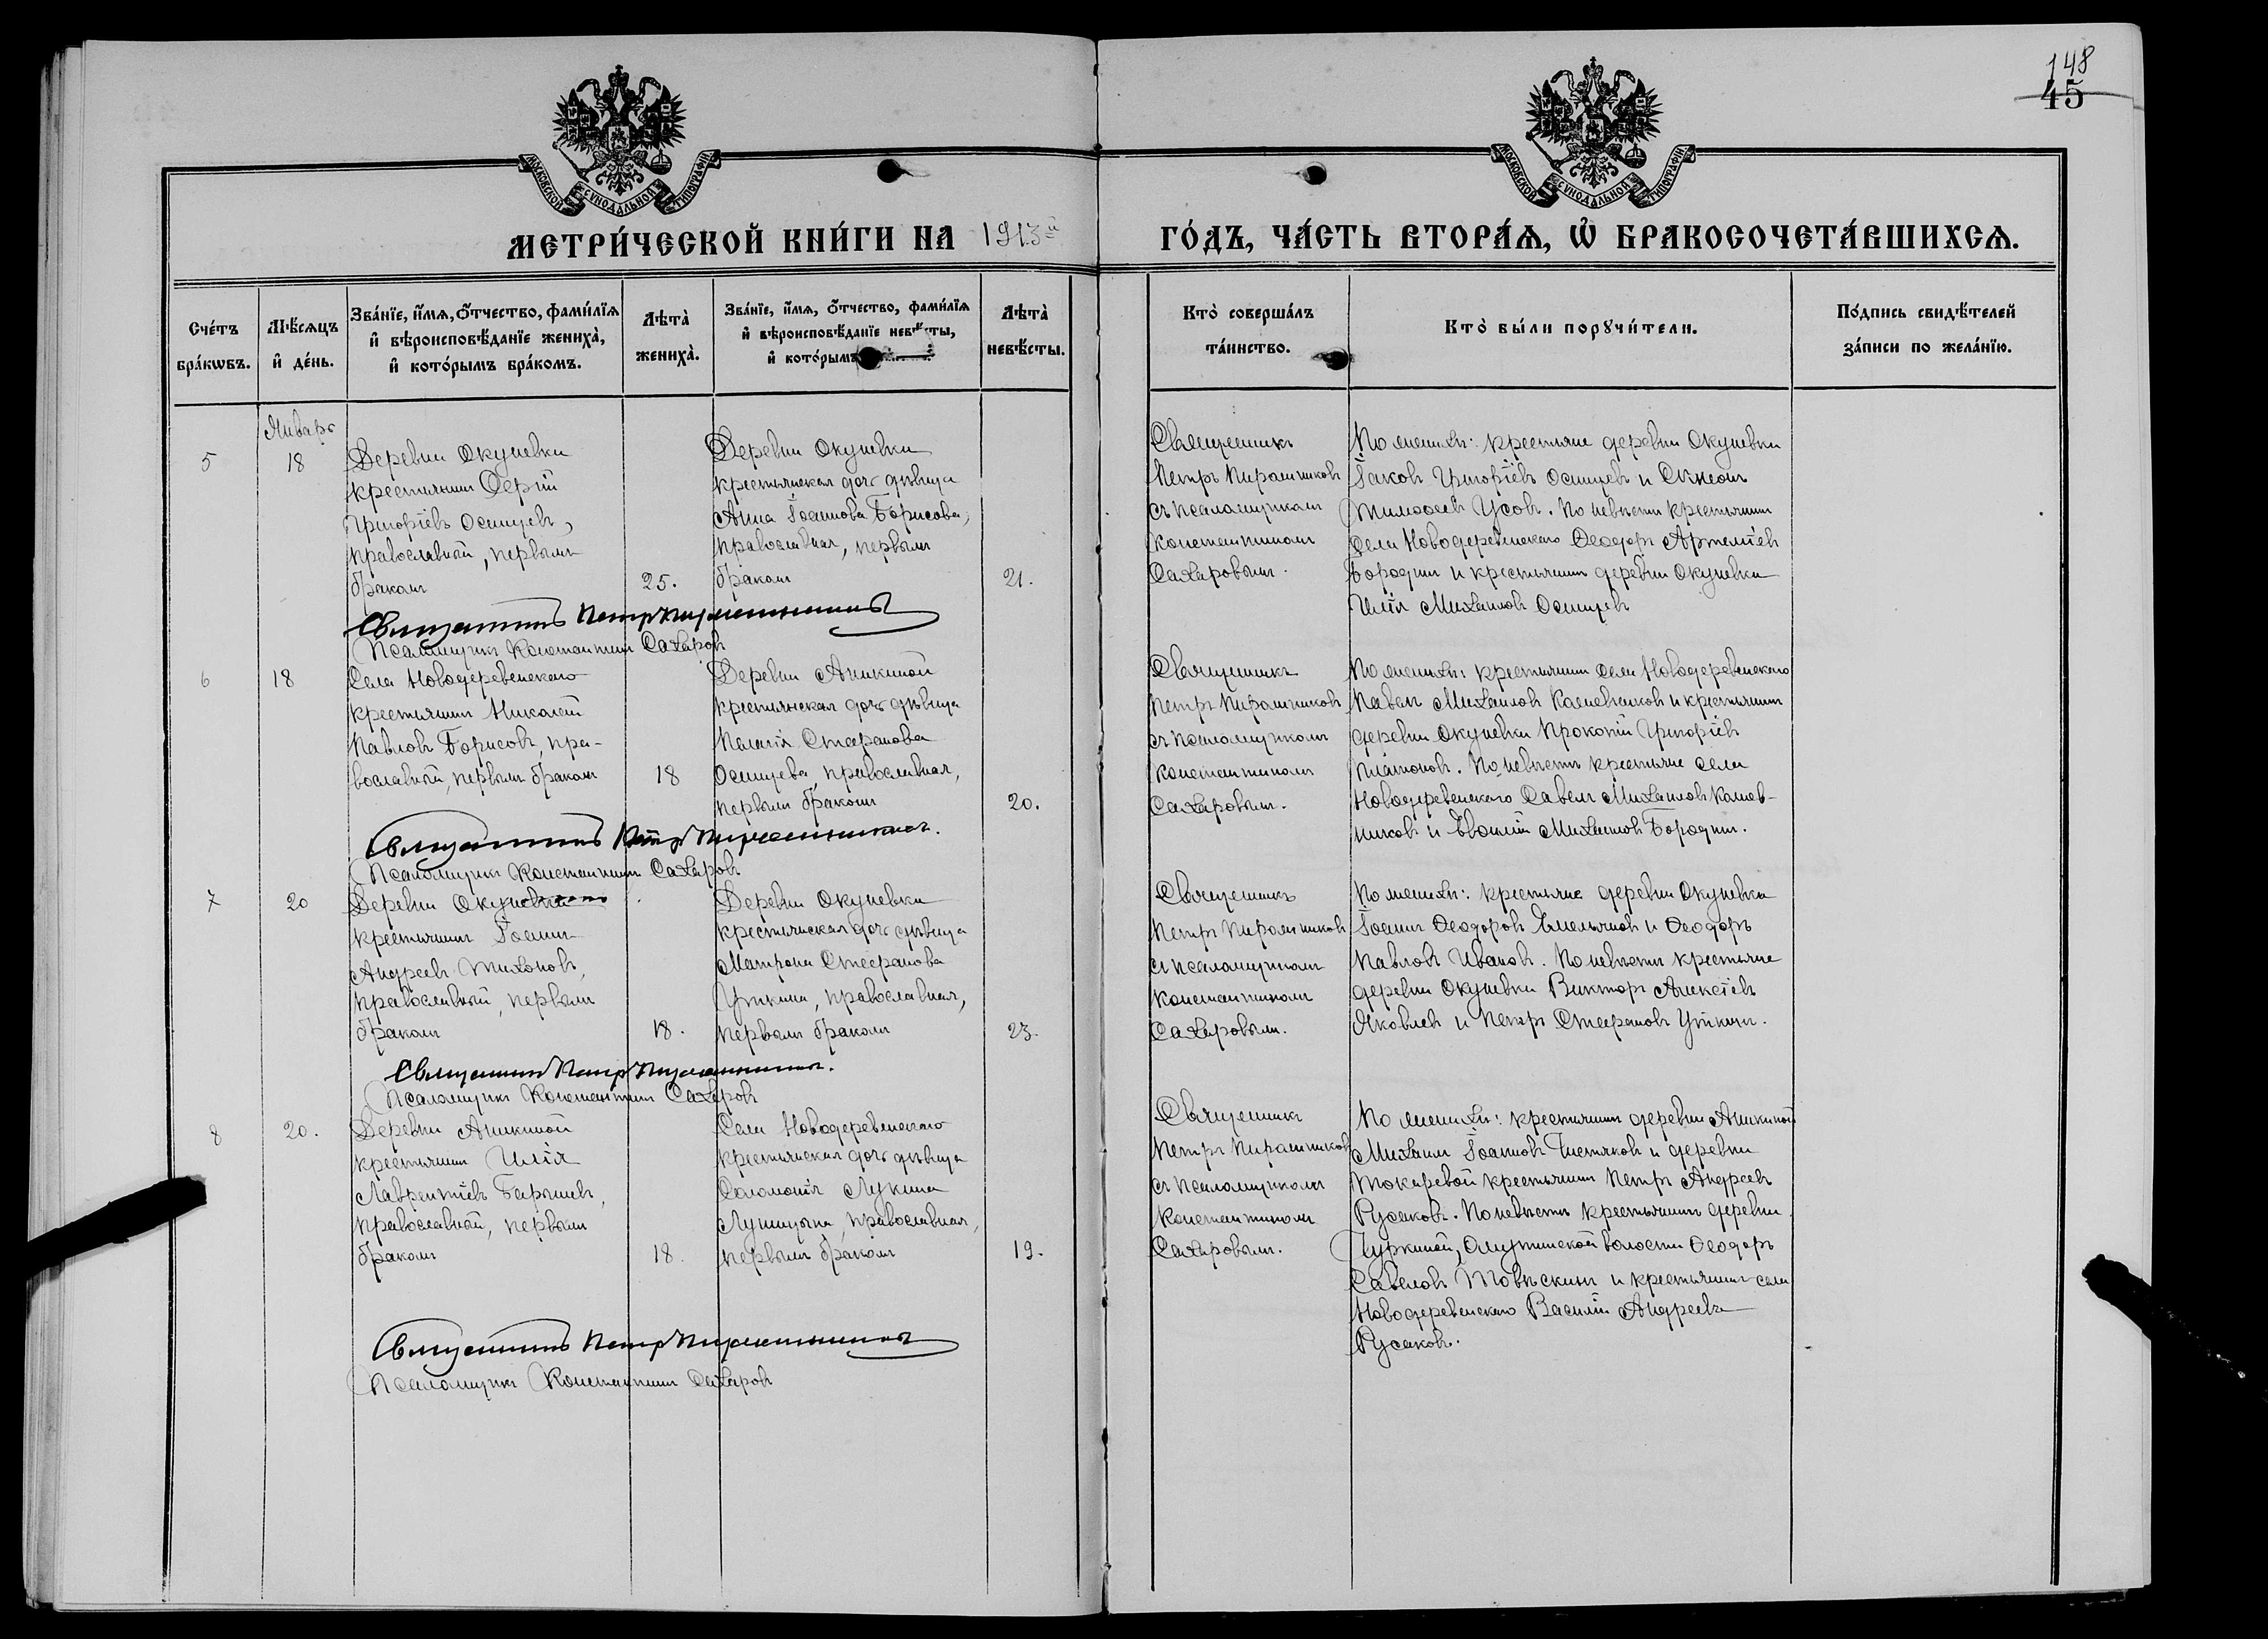 148
45
МОСКОВСКОЙ СѴНОДАЛЬНОЙ ТИПОГРАФІИ
МОСКОВСКОЙ СѴНОДАЛЬНОЙ ТИПОГРАФІИ
МЕТРИ́ЧЕСКОЙ КНИ́ГИ НА 1913й ГО́ДЪ, ЧА́СТЬ ВТОРА́Ѧ, Ѡ҆ БРАКОСОЧЕТА́ВШИХСѦ.
Сче́тъ бра́кѡвъ.
Мѣ́сѧцъ и҆ де́нь.
Зва́нїе, и҆́мѧ, ѻ҆́тчество, фами́лїѧ
и҆ вѣроисповѣ́данїе жениха̀,
и҆ кото́рымъ бра́комъ.
Лѣта̀ жениха̀.
Зва́нїе, и҆́мѧ, ѻ҆́тчество, фами́лїѧ
и҆ вѣроисповѣ́данїе невѣ́сты,
и҆ кото́рымъ
Лѣта̀ невѣ́сты.
Кто̀ соверша́лъ
та́инство.
Кто̀ бы́ли порꙋчи́тели.
По́дпись свидѣ́телей
за́писи по жела́нїю.
Январь
5
18
Деревни Окуневки
крестьянинъ Сергій
Григоріевъ Осинцевъ,
православный, первымъ
бракомъ
25.
Деревни Окуневки
крестьянская дочь дѣвица
Анна Іоаннова Борисова,
православная, первымъ
бракомъ
21.
Священникъ
Петръ Пирожниковъ
съ псаломщикомъ
Константиномъ
Сахаровымъ.
По женихѣ: крестьяне деревни Окуневки
Іаковъ Григоріевъ Осинцевъ и Симеонъ
Тимоѳеевъ Усовъ. По невѣстѣ крестьянинъ
села Новодеревенскаго Ѳеодоръ Артеміевъ
Бородинъ и крестьянинъ деревни Окуневки
Илія Михаиловъ Осинцевъ
Священникъ Петръ Пирожниковъ
Псаломщикъ Константинъ Сахаровъ
6
18
Села Новодеревенскаго
крестьянинъ Николай
Павловъ Борисовъ, пра-
вославный, первымъ бракомъ
18
Деревни Аникиной
крестьянская дочь дѣвица
Пелагія Стефанова
Осинцева, православная,
первымъ бракомъ
20.
Священникъ
Петръ Пирожниковъ
съ псаломщикомъ
Константиномъ
Сахаровымъ.
По женихѣ: крестьянинъ села Новодеревенскаго
Павелъ Михаиловъ и крестьянинъ
деревни Окуневки Прокопій Григоріевъ
Платоновъ. По невѣстѣ крестьяне села
Новодеревенскаго Савелъ Михаиловъ
и Михаиловъ Бородинъ.
Священникъ Петръ Пирожниковъ.
Псаломщикъ Константинъ Сахаровъ
7
20
Деревни Окуневки
крестьянинъ Іоаннъ
Андреевъ Тихоновъ,
православный, первымъ
бракомъ
18.
Деревни Окуневки
крестьянская дочь дѣвица
Матрона Стефанова
Уткина, православная,
первымъ бракомъ
23.
Священникъ
Петръ Пирожниковъ
съ псаломщикомъ
Константиномъ
Сахаровымъ.
По женихѣ: крестьяне деревни Окуневки
Іоаннъ Ѳеодоровъ Емельяновъ и Ѳеодоръ
Павловъ Ивановъ. По невѣстѣ крестьяне
деревни Окуневки Викторъ Алексіевъ
Яковлевъ и Петръ Стефановъ Уткинъ.
Священникъ Петръ Пирожниковъ.
Псаломщикъ Константинъ Сахаровъ
8
20.
Деревни Аникиной
крестьянинъ Илія
Лаврентіевъ Барышевъ,
православный, первымъ
бракомъ
18.
Села Новодеревенскаго
крестьянская дочь дѣвица
Соломонія Лукина
православная,
первымъ бракомъ
19.
Священникъ
Петръ Пирожниковъ
съ псаломщикомъ
Константиномъ
Сахаровымъ.
По женихѣ: крестьянинъ деревни Аникиной
Михаилъ Іоанновъ и деревни
Токаревой крестьянинъ Петръ Андреевъ
Русаковъ. По невѣстѣ крестьянинъ деревни
Чуркиной, Омутинской волости Ѳеодоръ
Савеловъ и крестьянинъ села
Новодеревенскаго Василій Андреевъ
Русаковъ.
Священникъ Петръ Пирожниковъ
Псаломщикъ Константинъ Сахаровъ